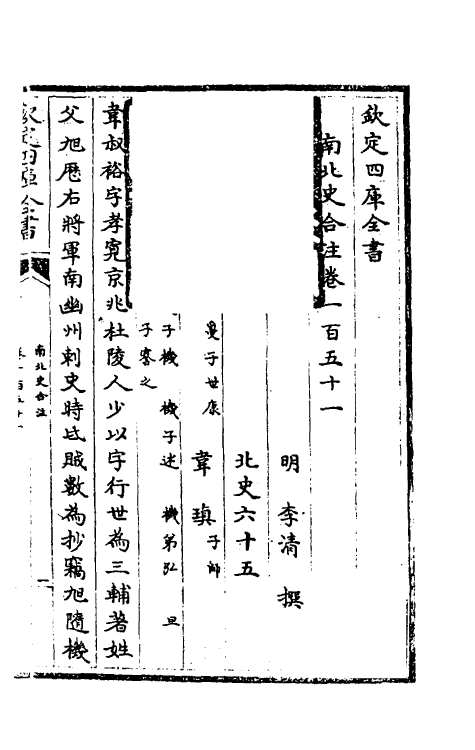 欽定四庫全書
南北史合注卷一百五十一
明 李清 撰
北史六十五
韋瑱 子師
子機 機子述 機弟弘 旦
子謇之
韋叔裕字孝寬京兆杜陵人少以字行世為三輔著姓
父旭歷右將軍南幽州刺史時氐賊數為抄竊旭隨機
欽定四庫全書
南北史合注
一